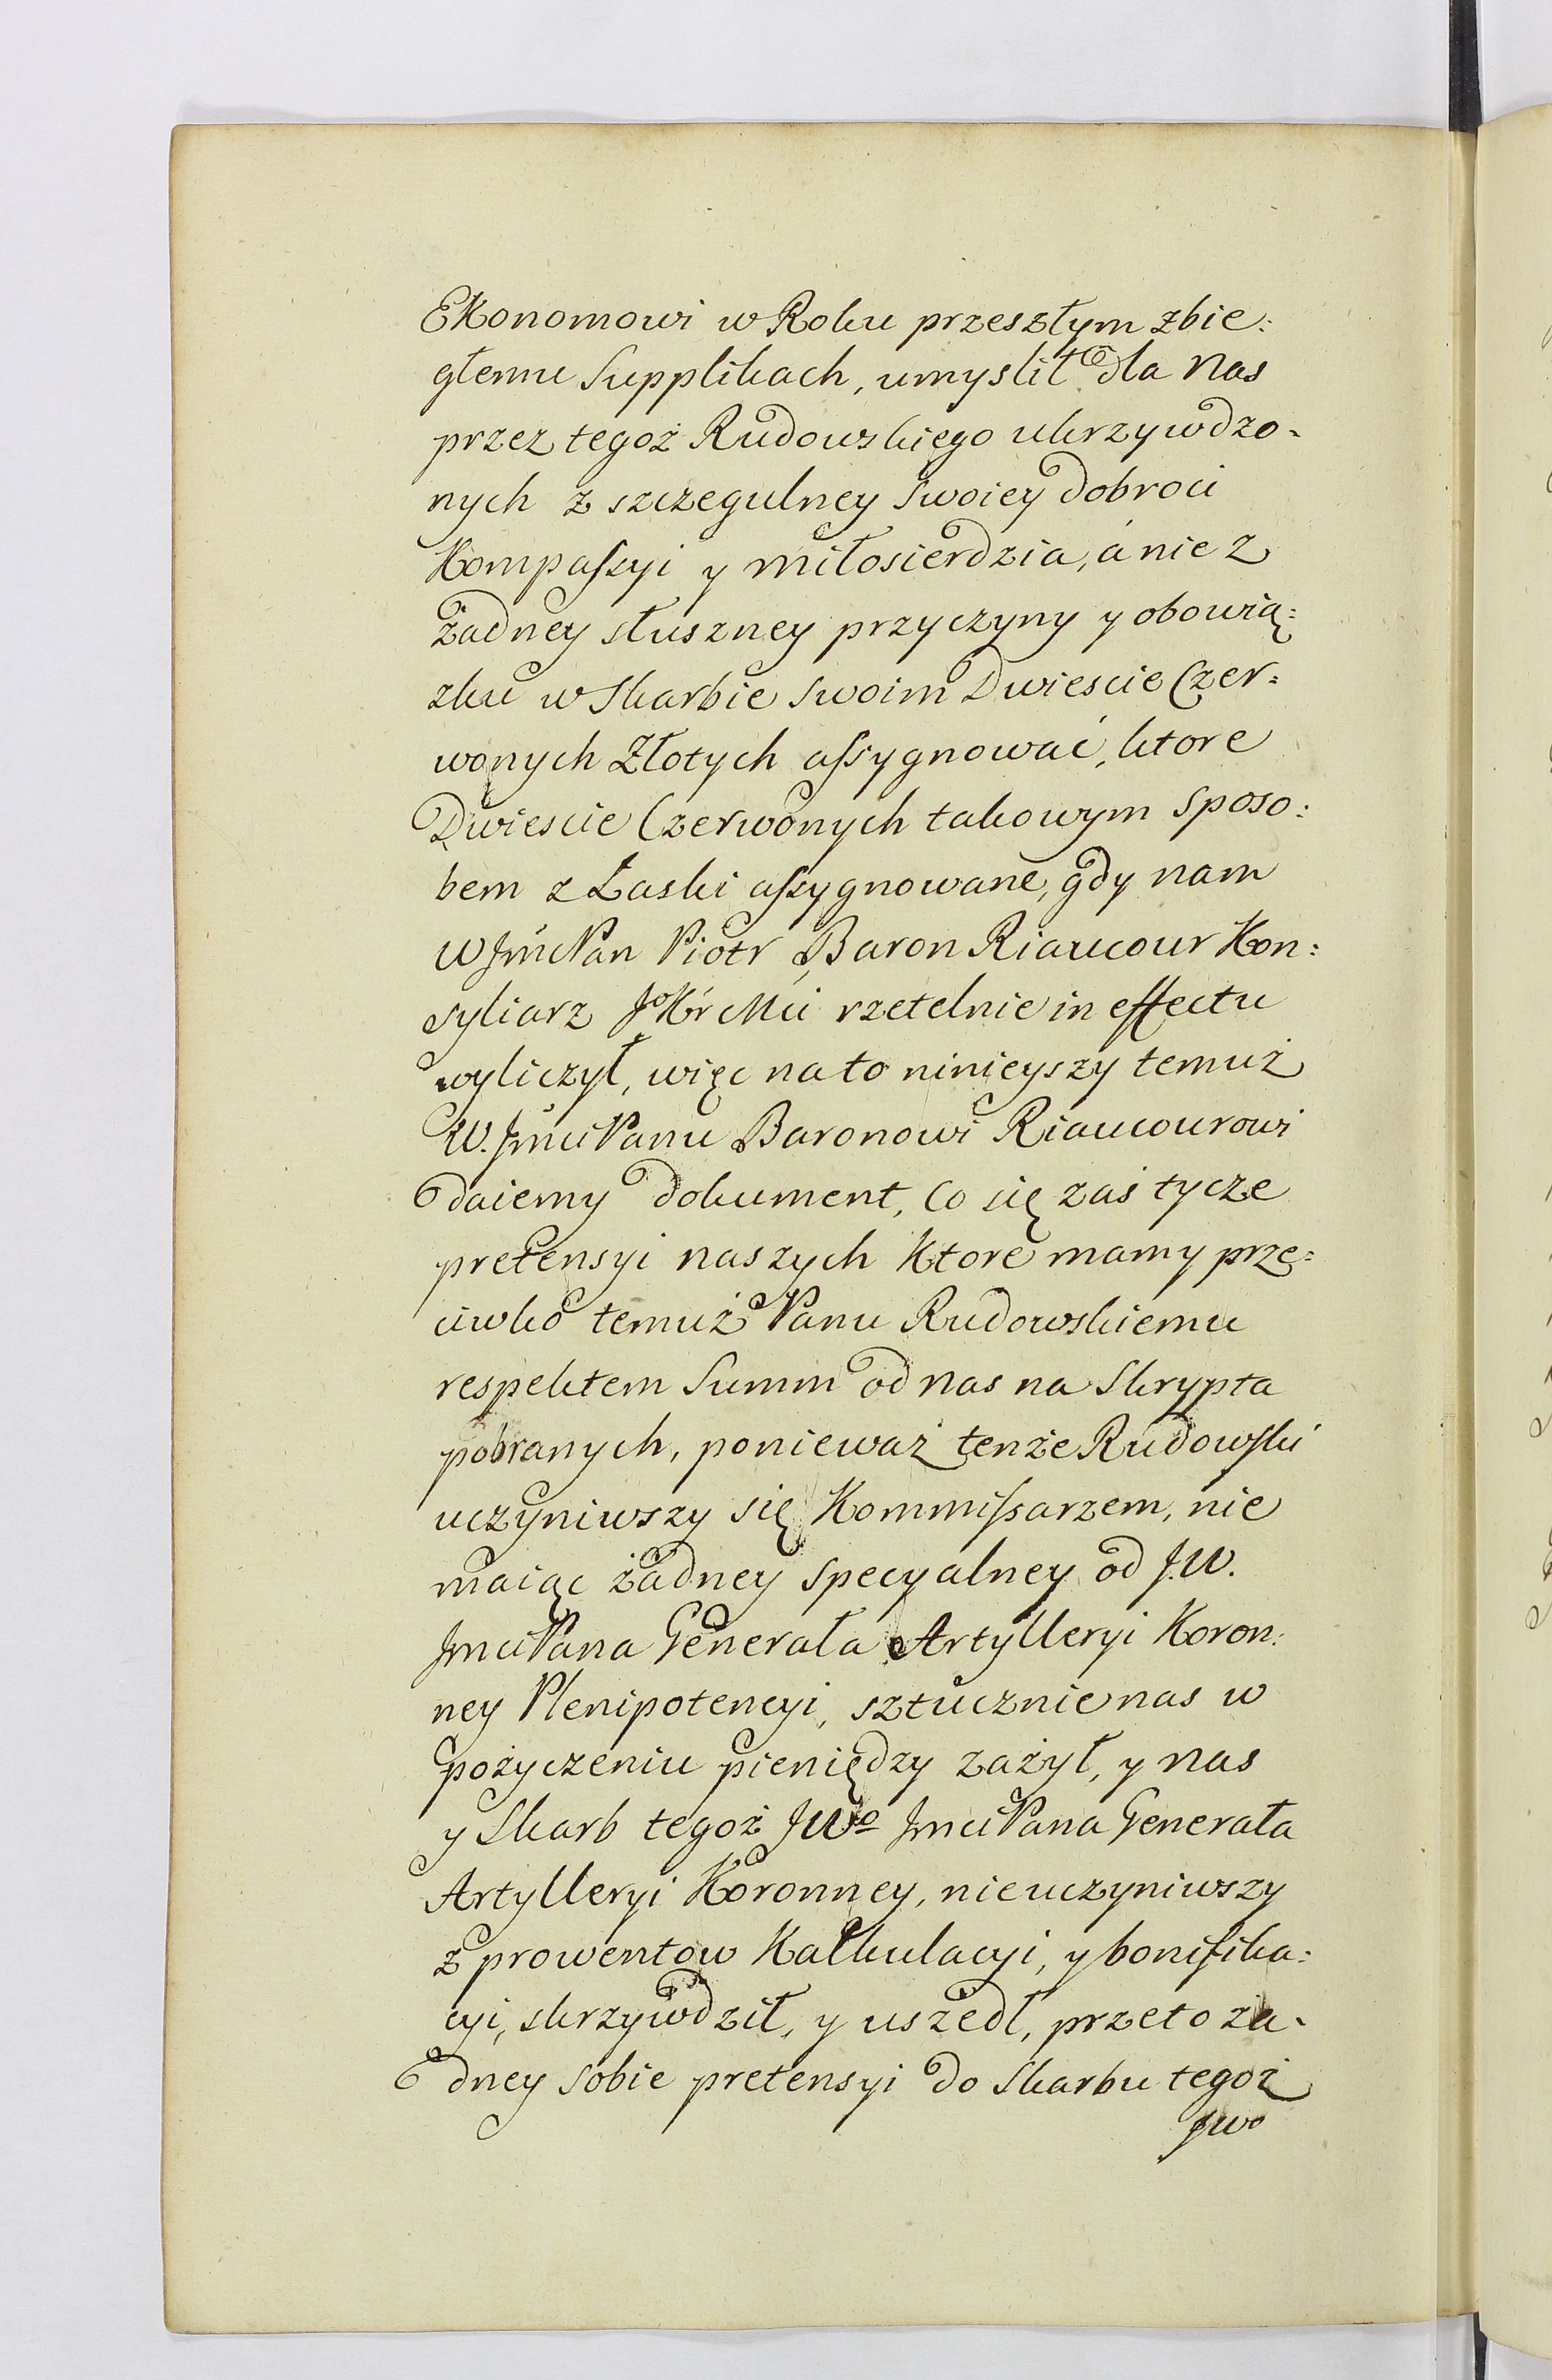 Ekonomowi w Roku przeszłym zbie:
głemu Supplikach, umyslił dla Nas
przez tegoż Rudowskiego ukrzywdzo-
nych z szczegulney Swoiey dobroci
Kompaſsyi y miłosierdzia, á nie z
żadney słuszney przyczyny y obowią:
zku w Skarbie Swoim Dwiescie Czer=
wonych Złotych aſsygnować, ktore
Dwiescie Czerwonych takowym sposo:
bem z Łaski aſsygnowane, gdy nam
W Jmć Pan Piotr Baron Riaucour Kon:
syliarz JoKr Mći rzetelnie in effectu
wyliczył, więc na to ninieyszy temuż
W. Jmći Panu Baronowi Riaucourowi
daiemy dokument, Co się zaś tycze
pretensyi naszych Ktore mamy prze=
ciwko temuż Panu Rudowskiemu
respektem Summ od nas na Skrypta
pobranych, ponieważ tenże Rudowſki
uczyniwszy się Kommiſsarzem, nie
maiąc żadney specyalney od J.W.
Jmci Pana Generała Artylleryi Koron:
ney Plenipotencyi, sztucznie nas w
pożyczeniu pieniędzy zażył, y nas
y Skarb tegoż JWo Jmci Pana Generała
Artylleryi Koronney, nie uczyniwszy
z prowentow Kalkulacyi, y bonifika:
cyi, skrzywdził, y uszedł, przeto ża-
dney sobie pretensyi do Skarbu tegoż
JWo